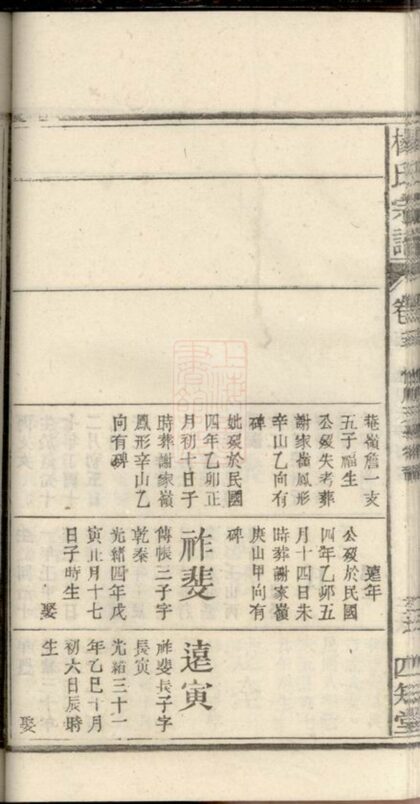 楊氏宗譜
卷
四知堂
菴嶺詹一支
五子福生
公歿失考葬
謝家嶺鳳形
辛山乙向有
碑
妣歿於民國
四年乙卯正
月初十日子
時葬謝家嶺
鳳形辛山乙
向有碑
遠年
公歿於民國
四年乙卯五
月十四日未
時葬謝家嶺
庚山甲向有
碑
祚斐
傳帳三子字
乾泰
光緒四年戊
寅正月十七
日子時生
娶
遠寅
祚斐長子字
長寅
光緒三十一
年乙巳十月
初六日辰時
生
娶